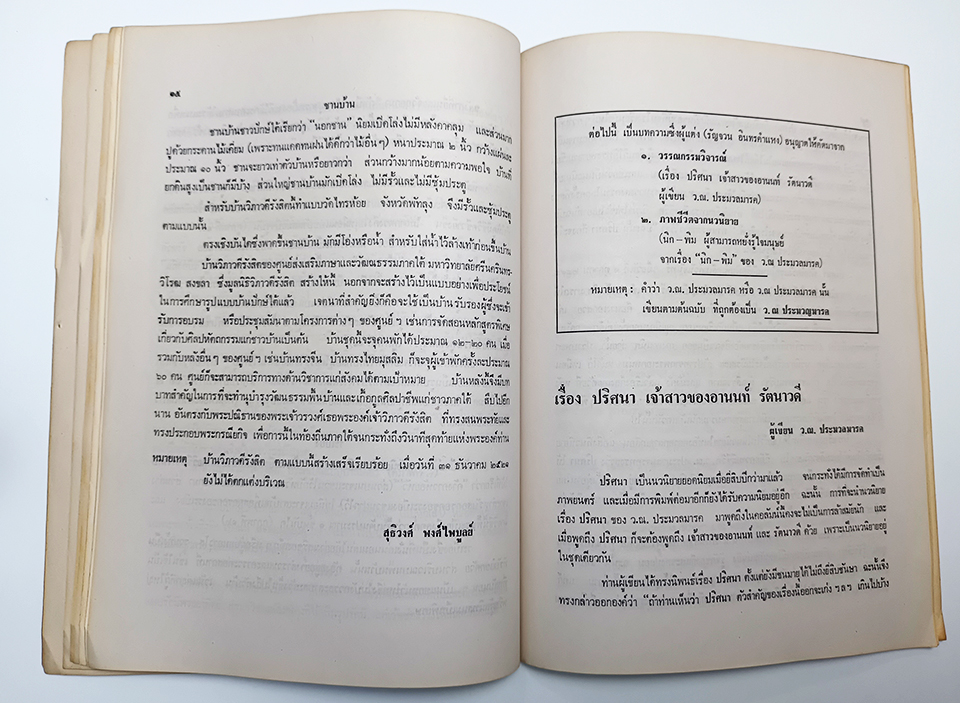 ๑๕
ชานบ้าน
ชานบ้านชาวปักษ์ใต้เรียกว่า "นอกชาน" นิยมเปิดโล่งไม่มีหลังคาคลุม และส่วนมาก
ปูด้วยกระดานไม้เคี่ยม (เพราะทนแดดทนฝนได้ดีกว่าไม้อื่นๆ) หนาประมาณ ๒ นิ้ว กว้างแผ่นละ
ประมาณ ๑๐ นิ้ว ชานจะยาวเท่าตัวบ้านหรือยาวกว่า ส่วนกว้างมากน้อยตามความพอใจ บ้านที่
ยกดินสูงเป็นชานก็มีบ้าง ส่วนใหญ่ชานบ้านมักเปิดโล่ง ไม่มีรั้วและไม่มีซุ้มประตู
สำหรับบ้านวิภาวดีรังสิตนี้ทำแบบวัดไทรห้อย จังหวัดพัทลุง จึงมีรั้วและซุ้มประตู
ตามแบบนั้น
ตรงเชิงบันไดซึ่งพาดขึ้นชานบ้าน มักมีโอ่งหรือน้ำ สำหรับใส่น้ำไว้ล้างเท้าก่อนขึ้นบ้าน
บ้านวิภาวดีรังสิตของศูนย์ส่งเสริมภาษาและวัฒนธรรมภาคใต้ มหาวิทยาลัยศรีนครินทร-
วิโรฒ สงขลา ซึ่งมูลนิธิวิภาวดีรังสิต สร้างให้นี้ นอกจากจะสร้างไว้เป็นแบบอย่างเพื่อประโยชน์
ในการศึกษารูปแบบบ้านปักษ์ใต้แล้ว เจตนาที่สำคัญยิ่งก็คือจะใช้เป็นบ้านรับรองผู้ซึ่งจะเข้า
รับการอบรม หรือประชุมสัมนาตามโครงการต่างๆ ของศูนย์ฯ เช่นการจัดสอนหลักสูตรพิเศษ
เกี่ยวกับศิลปหัตถกรรมแก่ชาวบ้านเป็นต้น บ้านชุดนี้จะจุคนพักได้ประมาณ ๑๒–๒๐ คน เมื่อ
รวมกับหลังอื่นๆ ของศูนย์ฯ เช่นบ้านทรงจีน บ้านทรงไทยมุสลิม ก็จะจุผู้เข้าพักครั้งละประมาณ
๖๐ คน ศูนย์ก็จะสามารถบริการทางด้านวิชาการแก่สังคมได้ตามเป้าหมาย บ้านหลังนี้จึงมีบท
บาทสำคัญในการที่จะทำนุบำรุงวัฒนธรรมพื้นบ้านและเกื้อกูลศิลปาชีพแก่ชาวภาคใต้ สืบไปอีก
นาน อันตรงกับพระปณิธานของพระเจ้าวรวงศ์เธอพระองค์เจ้าวิภาวดีรังสิต ที่ทรงสนพระทัยและ
ทรงประกอบพระกรณียกิจ เพื่อการนี้ในท้องถิ่นภาคใต้จนกระทั่งถึงวินาทีสุดท้ายแห่งพระองค์ท่าน
หมายเหตุ บ้านวิภาวดีรังสิต ตามแบบนี้สร้างเสร็จเรียบร้อย เมื่อวันที่ ๓๑ ธันวาคม ๒๕๒๑
ยังไม่ได้ตกแต่งบริเวณ
สุธิวงศ์ พงศ์ไพบูลย์
ต่อไปนี้ เป็นบทความซึ่งผู้แต่ง (รัญจวน อินทรกำแหง) อนุญาตให้คัดมาจาก
๑. วรรณกรรมวิจารณ์
(เรื่อง ปริศนา เจ้าสาวของอานนท์ รัตนาวดี
ผู้เขียน ว.ณ. ประมวลมารค)
๒. ภาพชีวิตจากนวนิยาย
(นิก – พิม ผู้สามารถหยั่งรู้ใจมนุษย์
จากเรื่อง "นิก–พิม" ของ ว.ณ ประมวลมารค)
หมายเหตุ : คำว่า ว.ณ. ประมวลมารค หรือ ว.ณ ประมวลมารค นั้น
เขียนตามต้นฉบับ ที่ถูกต้องเป็น ว.ณ ประมวญมารค
เรื่อง ปริศนา เจ้าสาวของอานนท์ รัตนาวดี
ผู้เขียน ว.ณ. ประมวลมารค
ปริศนา เป็นนวนิยายยอดนิยมเมื่อยี่สิบปีกว่ามาแล้ว จนกระทั่งได้มีการจัดทำเป็น
ภาพยนตร์ และเมื่อมีการพิมพ์ต่อมาอีกก็ยังได้รับความนิยมอยู่อีก ฉะนั้น การที่จะนำนวนิยาย
เรื่อง ปริศนา ของ ว.ณ. ประมวลมารค มาพูดถึงในคอลัมน์นี้คงจะไม่เป็นการล้าสมัยนัก และ
เมื่อพูดถึง ปริศนา ก็จะต้องพูดถึง เจ้าสาวของอานนท์ และ รัตนาวดี ด้วย เพราะเป็นนวนิยายอยู่
ในชุดเดียวกัน
ท่านผู้เขียนได้ทรงนิพนธ์เรื่อง ปริศนา ตั้งแต่ยังมีชนมายุได้ไม่ถึงยี่สิบชันษา ฉะนั้นจึง
ทรงกล่าวออกองค์ว่า "ถ้าท่านเห็นว่า ปริศนา ตัวสำคัญของเรื่องนี้ออกจะเก่ง ฯลฯ เกินไปบ้าง